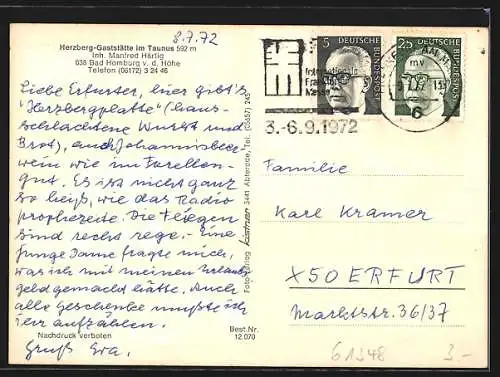 8.7.72
Herzberg-Gaststätte im Taunus 592 m
Inh. Manfred Härtig
638 Bad Homburg v. d. Höhe
Telefon (06172) 3 24 46
Liebe Erfurter, hier gibt's
"Herzbergplatte" (haus-
schlachtene Wurst und
Brot), auch Johannisbeer-
wein wie im Forellen-
gut. Es ist nicht ganz
so heiß, wie das Radio
prophezeite. Die Fliegen
sind recht rege. – Eine
junge Dame fragte mich,
was ich mit meinen Urlaubs-
geld gemacht hätte. Auch
alle Geschenke mußte ich
ihr aufzählen.
Nachdruck verboten
Gruß Eva.
Best.Nr.
12 070
Foto-Verlag 3441 Abterode, Tel. (05657) 245
5
DEUTSCHE
BUNDESPOST
25
DEUTSCHE
BUNDESPOST
Internationale
Messe
3.-6.9.1972
mv
6
Familie
Karl Kramer
X50 ERFURT
Marktstr. 36/37
61348
3.-